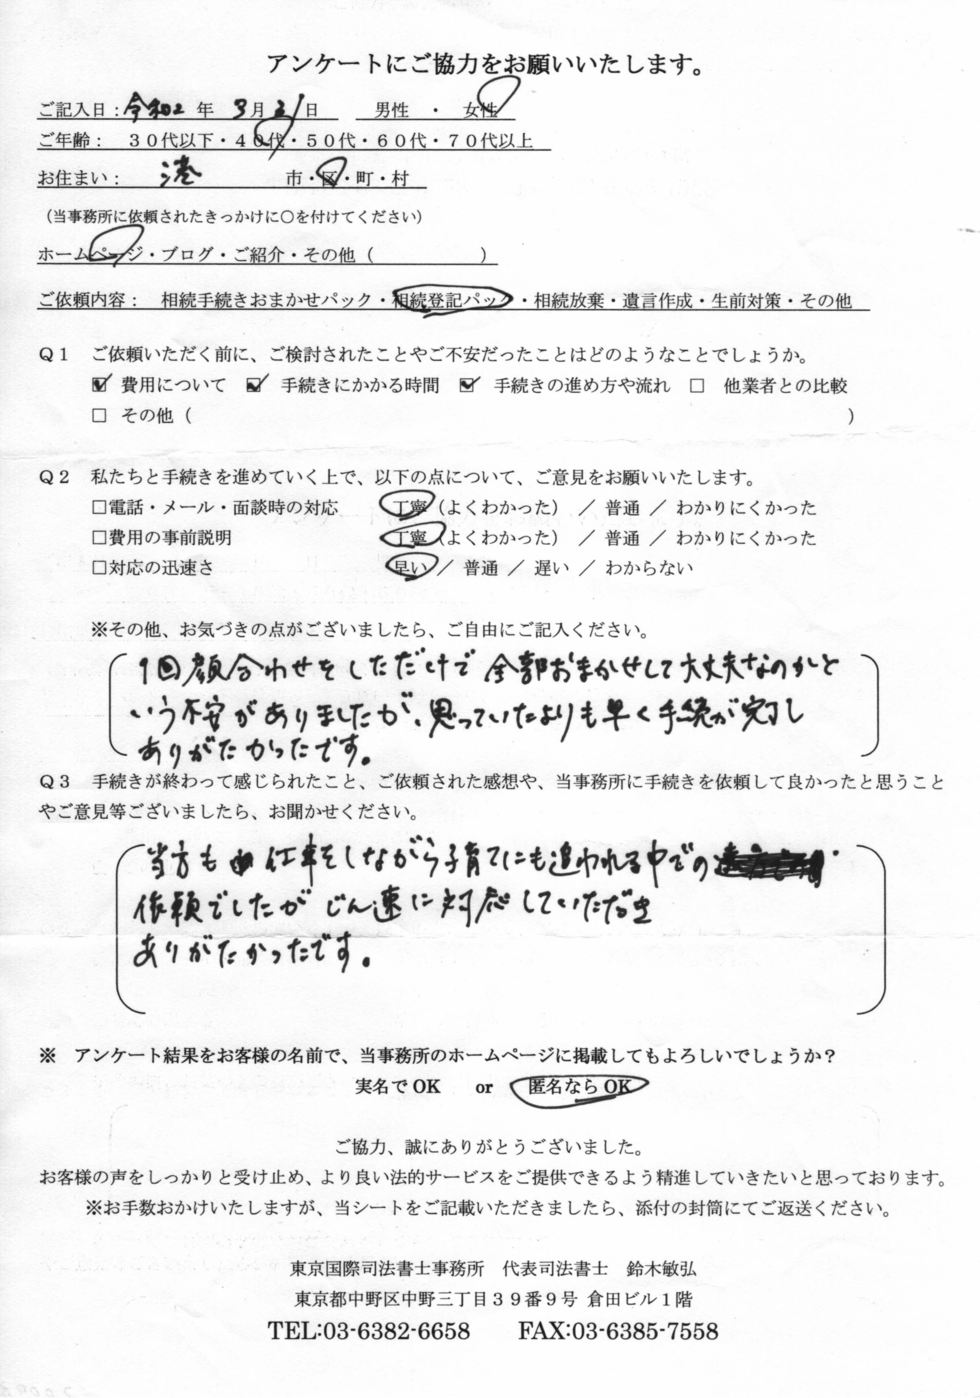 アンケートにご協力をお願いいたします。
ご記入日：令和2 年 3月31日　男性 ・ 女性
ご年齢： 30代以下・40代・50代・60代・70代以上
お住まい： 港 市・区・町・村
（当事務所に依頼されたきっかけに○を付けてください）
ホームページ・ブログ・ご紹介・その他（　　　　　　）
ご依頼内容： 相続手続きおまかせパック・相続登記パック・相続放棄・遺言作成・生前対策・その他
Q1 ご依頼いただく前に、ご検討されたことやご不安だったことはどのようなことでしょうか。
☑ 費用について ☑ 手続きにかかる時間 ☑ 手続きの進め方や流れ □ 他業者との比較
□ その他（　　　　　　）
Q2 私たちと手続きを進めていく上で、以下の点について、ご意見をお願いいたします。
□電話・メール・面談時の対応　丁寧（よくわかった） ／ 普通 ／ わかりにくかった
□費用の事前説明　丁寧（よくわかった） ／ 普通 ／ わかりにくかった
□対応の迅速さ　早い ／ 普通 ／ 遅い ／ わからない
※その他、お気づきの点がございましたら、ご自由にご記入ください。
1回顔合わせをしただけで全部おまかせして大丈夫なのかと
いう不安がありましたが、思っていたよりも早く手続が完了し
ありがたかったです。
Q3 手続きが終わって感じられたこと、ご依頼された感想や、当事務所に手続きを依頼して良かったと思うこと
やご意見等ございましたら、お聞かせください。
当方も仕事をしながら子育てにも追われる中での
依頼でしたがじん速に対応していただき
ありがたかったです。
※ アンケート結果をお客様の名前で、当事務所のホームページに掲載してもよろしいでしょうか？
実名でOK or 匿名ならOK
ご協力、誠にありがとうございました。
お客様の声をしっかりと受け止め、より良い法的サービスをご提供できるよう精進していきたいと思っております。
※お手数おかけいたしますが、当シートをご記載いただきましたら、添付の封筒にてご返送ください。
東京国際司法書士事務所 代表司法書士 鈴木敏弘
東京都中野区中野三丁目39番9号 倉田ビル1階
TEL:03-6382-6658 FAX:03-6385-7558